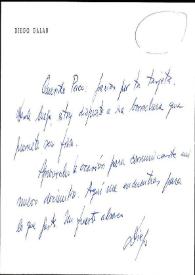 DIEGO GALAN
Querido Paco: gracias por tu tarjeta.
Desde luego estoy dispuesto a esa borrachera que
promete ser fina.
Aprovecho la ocasión para comunicarte mi
nuevo domicilio. Aquí me encuentras para
lo que guste. Un fuerte abrazo
Diego